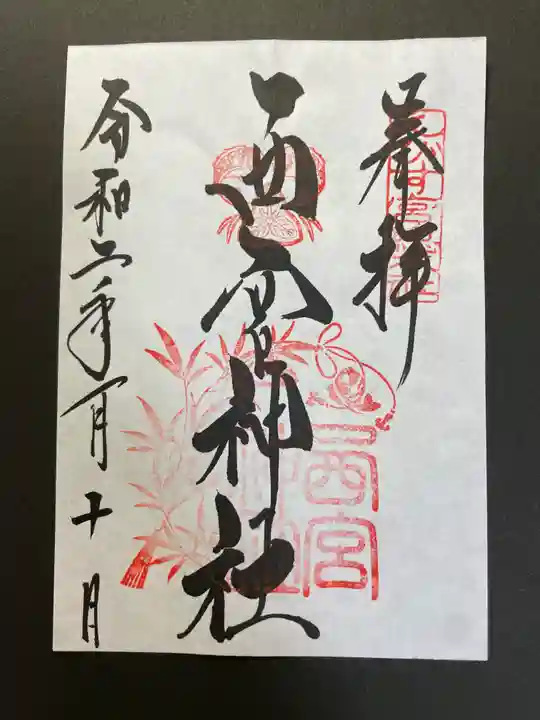 奉拝
西宮神社
令和二年一月十日
西宮
神社